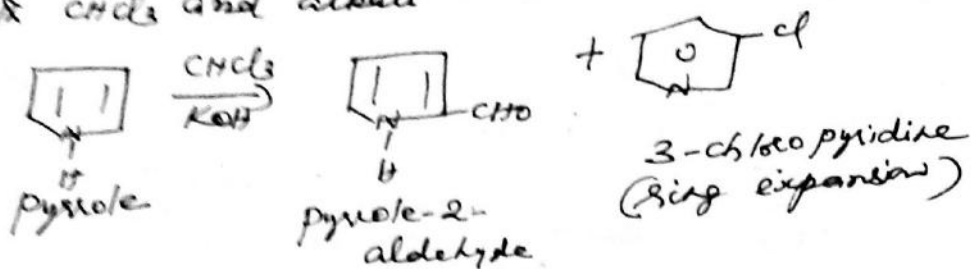 & CHCl3 and alkali
CHCl3
KOH
N
H
pyrrole
CHO
N
H
pyrrole-2-
aldehyde
+
Cl
N
3-chloropyridine
(ring expansion)